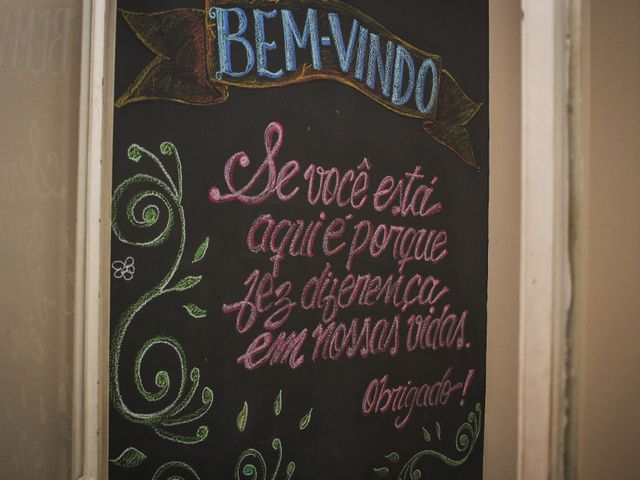 BEM-VINDO
Se você está
aqui é porque
fez diferença
em nossas vidas.
Obrigado!